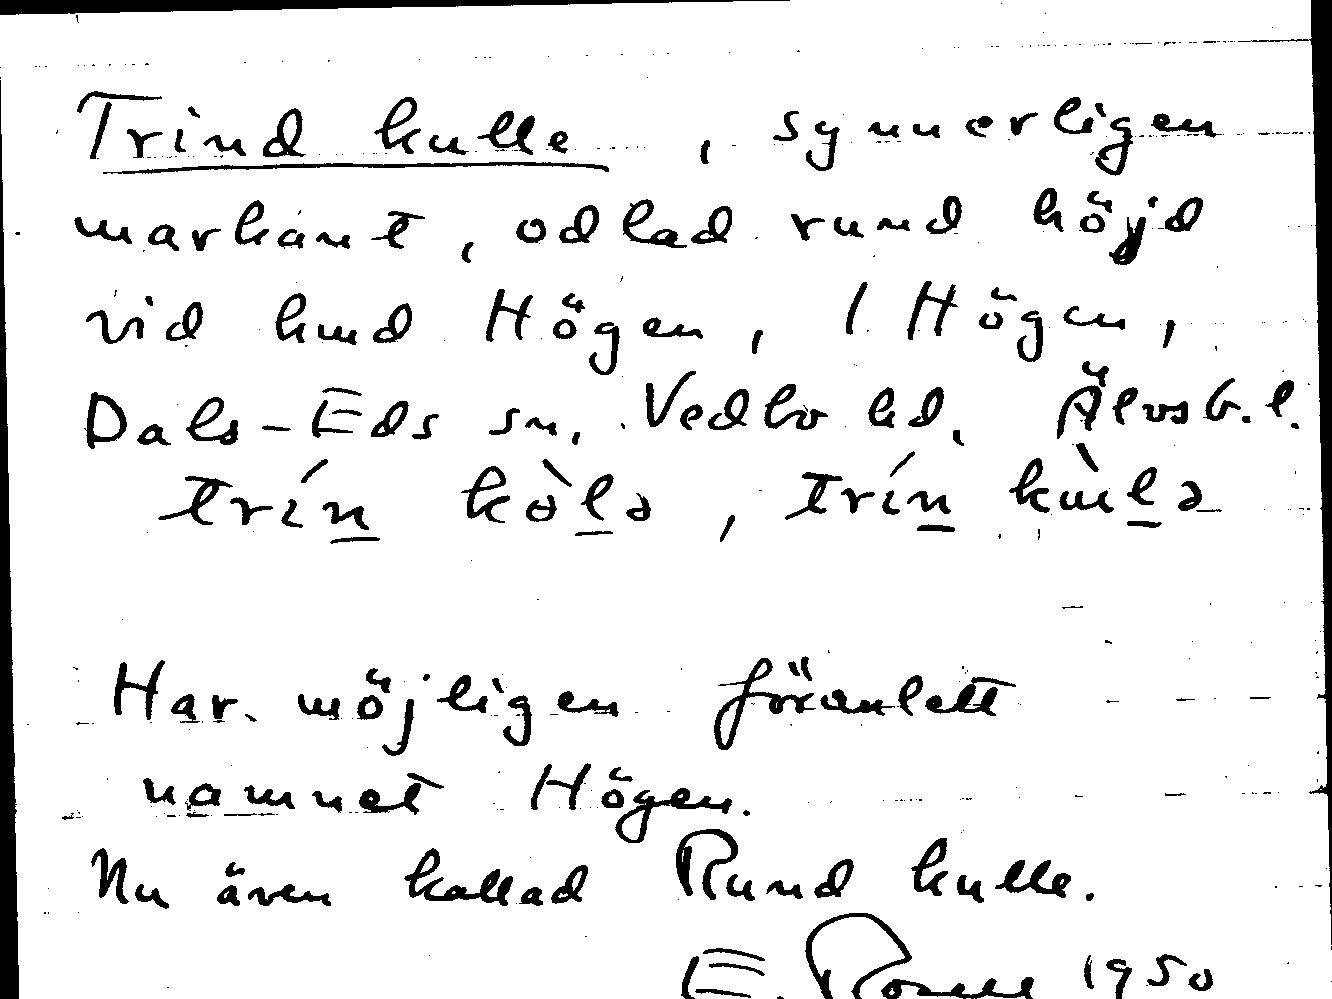 Trind kulle, synnerligen
markant, odlad rund höjd
vid hmd Högen, 1 Högen,
Dals-Eds sn, Vedbo hd, Älvsb. l.
trín kòlə, trín kùlə
Har möjligen föranlett
namnet Högen.
Nu även kallad Rund kulle.
E. 1950